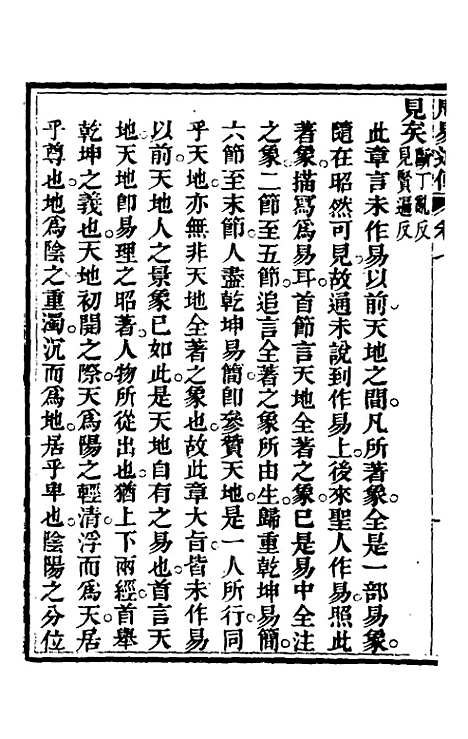 見矣斷丁亂反見賢遍反
此章言未作易以前天地之間凡所著象全是一部易象
隨在昭然可見故通未說到作易上後來聖人作易照此
著象描寫為易耳首節言天地全著之象已是易中全注
之象二節至五節追言全著之象所由生歸重乾坤易簡
六節至末節人盡乾坤易簡即參贊天地是一人所行同
乎天地亦無非天地全著之象也故此章大旨皆未作易
以前天地人之景象已如此是天地自有之易也首言天
地天地卽易理之昭著人物所從出也猶上下兩經首舉
乾坤之義也天地初開之際天為陽之輕清浮而為天居
乎尊也地為陰之重濁沉而為地居乎卑也陰陽之分位